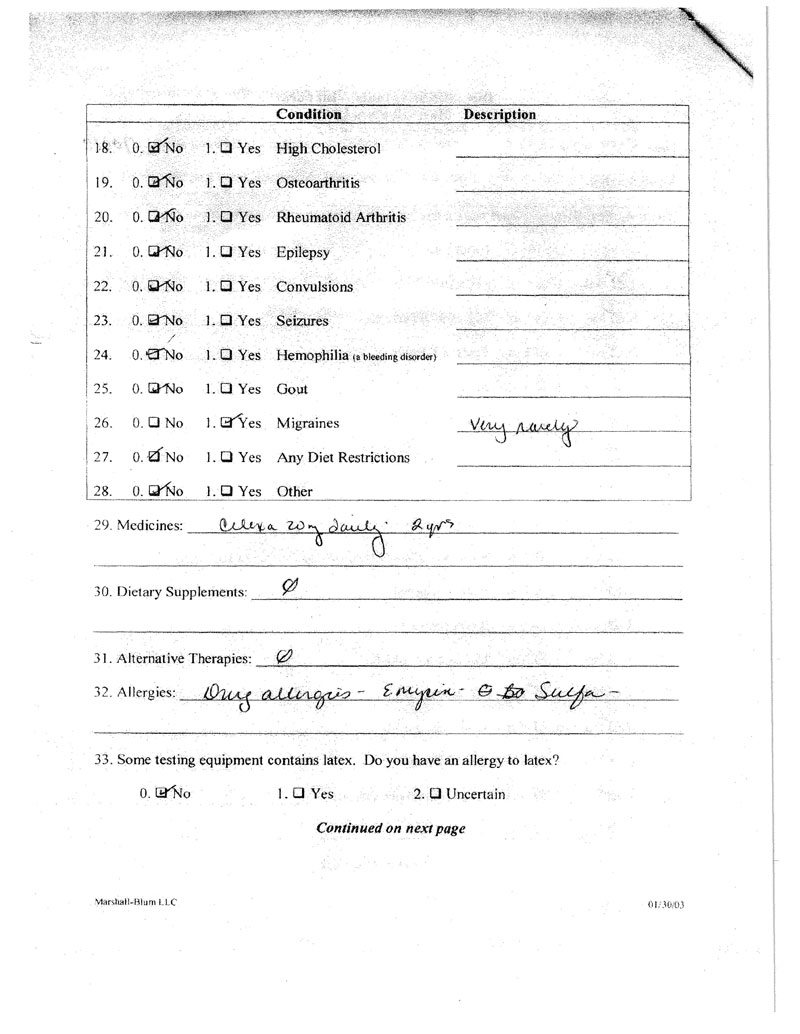 Condition Description
18. 0. ☑ No 1. ☐ Yes High Cholesterol
19. 0. ☑ No 1. ☐ Yes Osteoarthritis
20. 0. ☑ No 1. ☐ Yes Rheumatoid Arthritis
21. 0. ☑ No 1. ☐ Yes Epilepsy
22. 0. ☑ No 1. ☐ Yes Convulsions
23. 0. ☑ No 1. ☐ Yes Seizures
24. 0. ☑ No 1. ☐ Yes Hemophilia (a bleeding disorder)
25. 0. ☑ No 1. ☐ Yes Gout
26. 0. ☐ No 1. ☑ Yes Migraines Very rarely
27. 0. ☑ No 1. ☐ Yes Any Diet Restrictions
28. 0. ☑ No 1. ☐ Yes Other
29. Medicines: Celexa 20mg daily. 2 yrs
30. Dietary Supplements: Ø
31. Alternative Therapies: Ø
32. Allergies: Drug allergies - - to Sulfa -
33. Some testing equipment contains latex. Do you have an allergy to latex?
0. ☑ No 1. ☐ Yes 2. ☐ Uncertain
Continued on next page
Marshall-Blum LLC 01/30/03